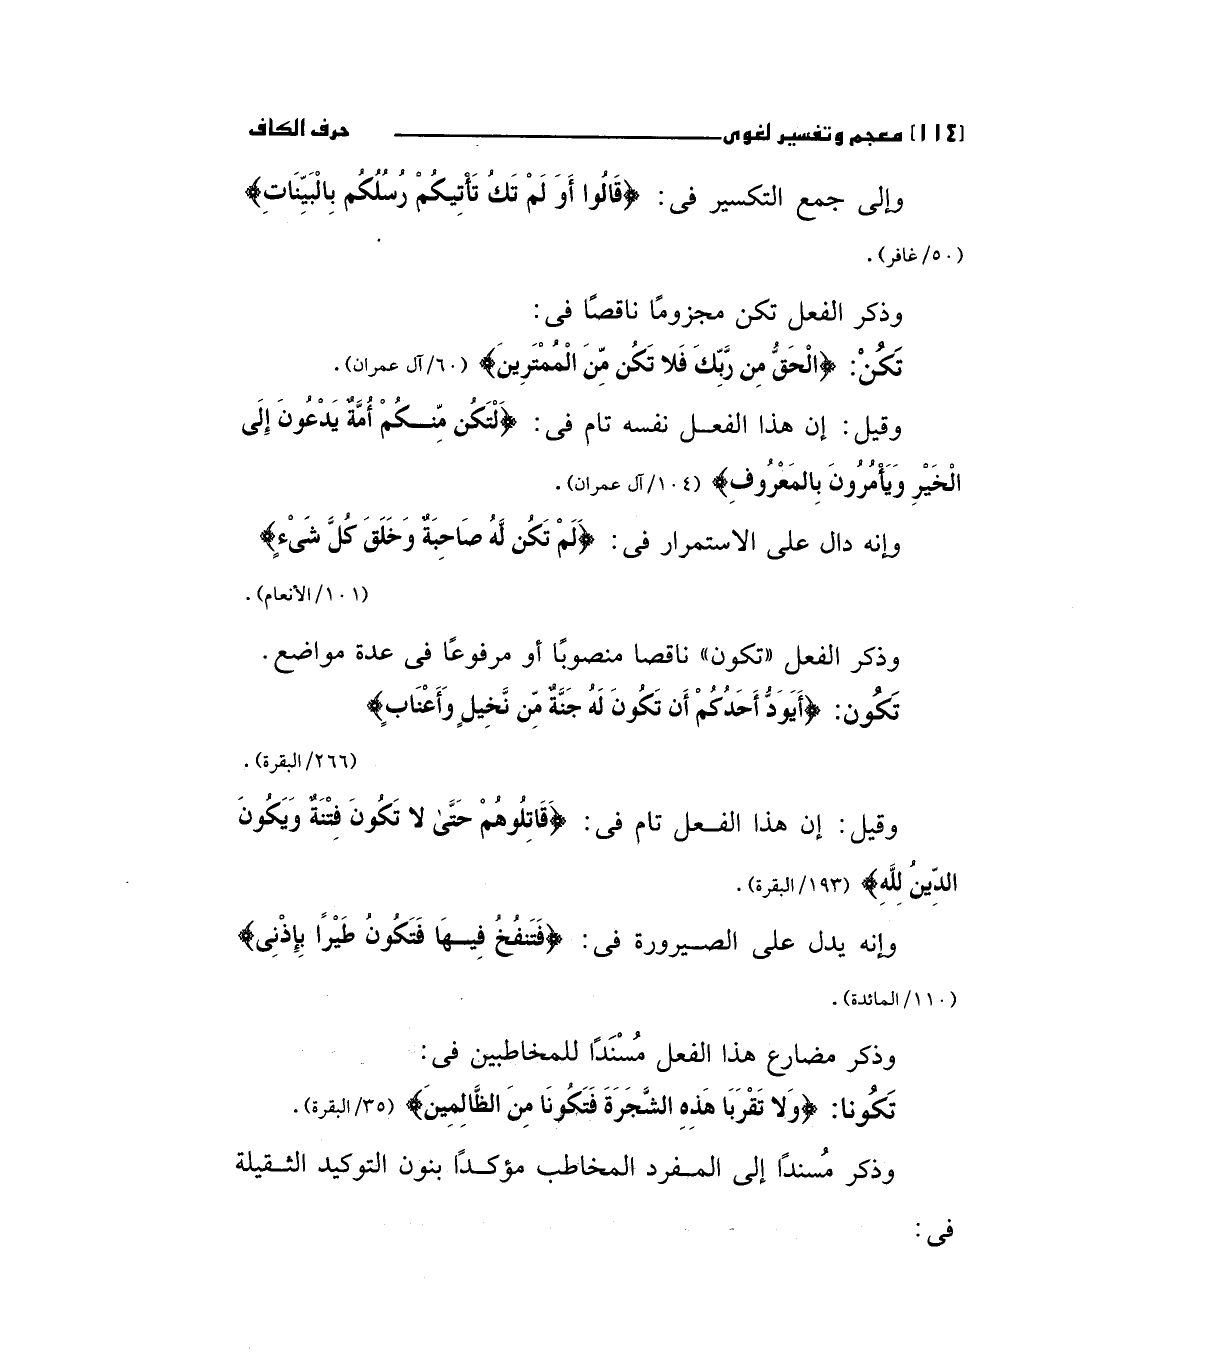 [١١٤] معجم وتفسير لغوى ـــــــــــــ حرف الكاف
وإلى جمع التكسير فى: ﴿قَالُوا أَوَ لَمْ تَكُ تَأْتِيكُمْ رُسُلُكُم بِالْبَيِّنَاتِ﴾
(٥٠/غافر).
وذكر الفعل تكن مجزومًا ناقصًا فى:
تَكُنْ: ﴿الْحَقُّ مِن رَّبِّكَ فَلا تَكُن مِّنَ الْمُمْتَرِينَ﴾ (٦٠/آل عمران).
وقيل: إن هذا الفعـل نفسه تام فى: ﴿لْتَكُن مِّنـكُمْ أُمَّةٌ يَدْعُونَ إِلَى
الْخَيْرِ وَيَأْمُرُونَ بِالمَعْرُوفِ﴾ (١٠٤/آل عمران).
وإنه دال على الاستمرار فى: ﴿لَمْ تَكُن لَّهُ صَاحِبَةٌ وَخَلَقَ كُلَّ شَىْءٍ﴾
(١٠١/الأنعام).
وذكر الفعل «تكون» ناقصا منصوبًا أو مرفوعًا فى عدة مواضع.
تَكُون: ﴿أَيَوَدُّ أَحَدُكُمْ أَن تَكُونَ لَهُ جَنَّةٌ مِّن نَّخِيلٍ وَأَعْنَابٍ﴾
(٢٦٦/البقرة).
وقيل: إن هذا الفـعل تام فى: ﴿قَاتِلُوهُمْ حَتَّىٰ لا تَكُونَ فِتْنَةٌ وَيَكُونَ
الدِّينُ لِلَّهِ﴾ (١٩٣/البقرة).
وإنه يدل على الصـيرورة فى: ﴿فَتَنفُخُ فِيـهَا فَتَكُونُ طَيْرًا بِإِذْنِى﴾
(١١٠/المائدة).
وذكر مضارع هذا الفعل مُسْنَدًا للمخاطبين فى:
تَكُونا: ﴿وَلا تَقْرَبَا هَذِهِ الشَّجَرَةَ فَتَكُونَا مِنَ الظَّالِمِينَ﴾ (٣٥/البقرة).
وذكر مُسندًا إلى المـفرد المخاطب مؤكـدًا بنون التوكيد الثـقيلة
فى: